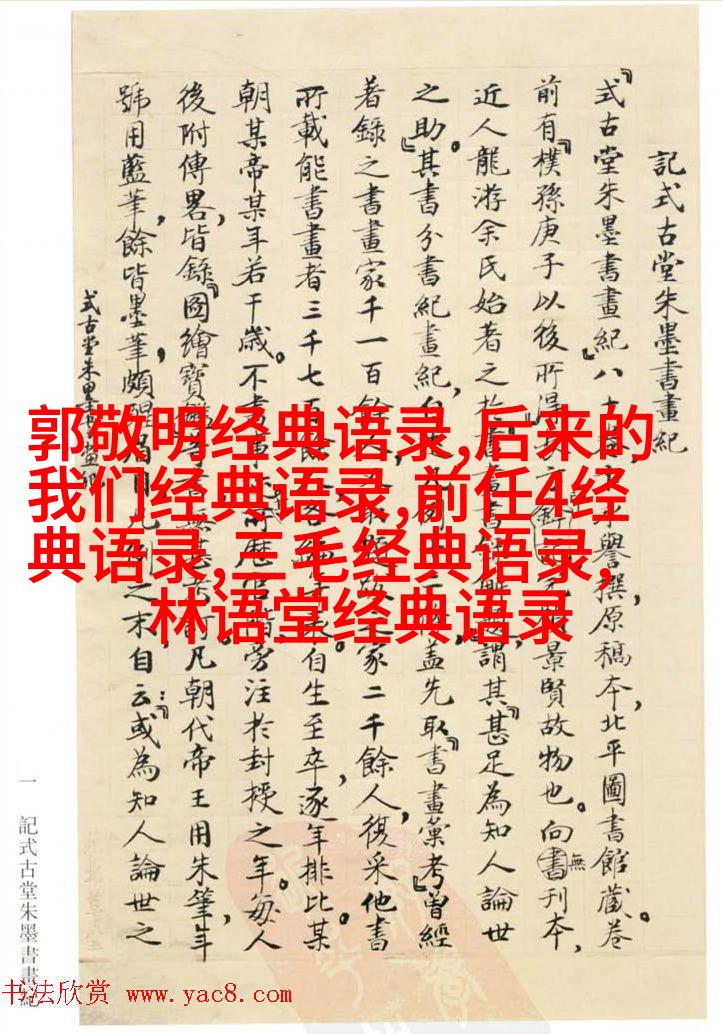 郭敬明经典语录,后来的
我们经典语录,前任4经
典语录,三毛经典语录,
林语堂经典语录
記式古堂朱墨書畫紀
『式古堂朱墨書畫紀』八十卷永譽撰,原稿本,北平圖書館藏。卷
前有『樸孫庚子以後所得景賢故物也。向無刊本,
近人龍游余氏始著之於書畫書解題,謂其『甚足為知人論世
之助』。其書分書紀畫紀,蓋先取『書畫彙考』曾經
著錄之書畫家千一百餘人,家二千餘人,復采他書
所載能書畫者三千七百餘自生至卒,逐年排比某
朝某帝某年若干歲。不書事旁注於封授之年。每人
後附傳畧,皆錄『圖繪寶凡朝代帝王用朱筆,年
號用藍筆,餘皆墨筆,頗醒之末自云:或為知人論世之
式古堂朱墨畫紀
一 記式古堂朱墨書畫紀
书法欣赏 www.yac8.com